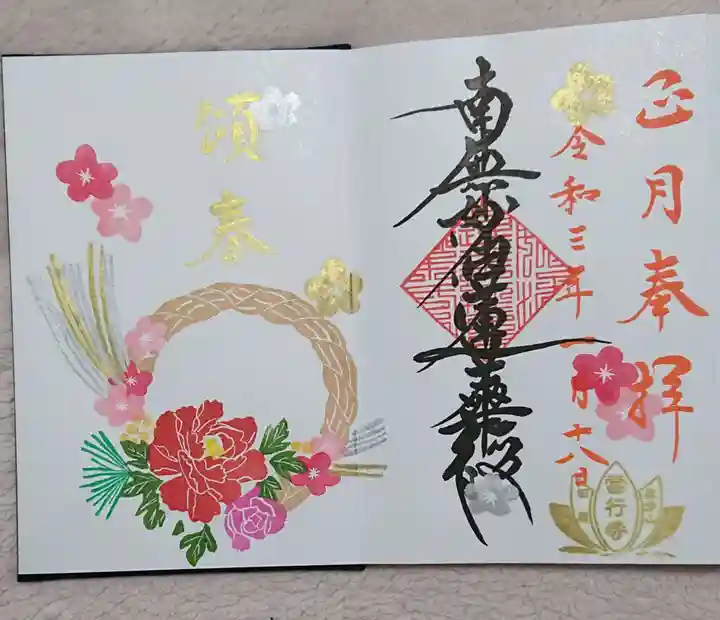 正月奉拝
令和三年一月十八日
南無妙法蓮華経
頌春
常行寺